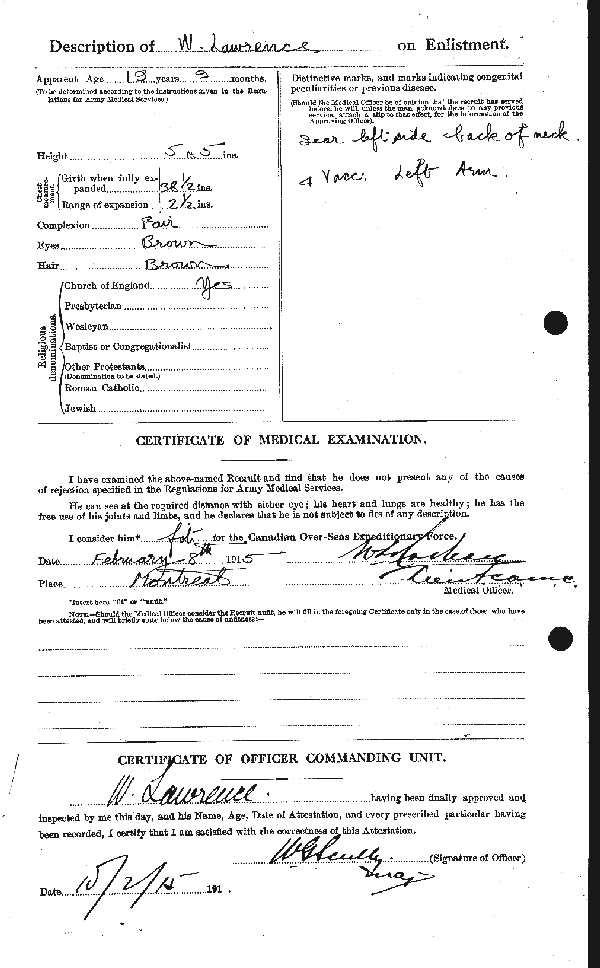 Description of W. Lawrence on Enlistment.
Apparent Age 19 years 9 months.
(To be determined according to the instructions given in the Regulations for Army Medical Services.)
Height 5 ft 5 ins.
Chest measurement.
Girth when fully expanded 38 1/2 ins.
Range of expansion 2 1/2 ins.
Complexion Fair
Eyes Brown
Hair Brown
Religious denominations.
Church of England Yes
Presbyterian
Wesleyan
Baptist or Congregationalist
Other Protestants
(Denomination to be stated.)
Roman Catholic
Jewish
Distinctive marks, and marks indicating congenital
peculiarities or previous disease.
(Should the Medical Officer be of opinion that the recruit has served
before, he will, unless the man acknowledges to any previous
service, attach a slip to that effect, for the information of the
Approving Officer).
Scar left side back of neck.
4 Vacc. Left Arm.
CERTIFICATE OF MEDICAL EXAMINATION.
I have examined the above-named Recruit and find that he does not present any of the causes
of rejection specified in the Regulations for Army Medical Services.
He can see at the required distance with either eye; his heart and lungs are healthy; he has the
free use of his joints and limbs, and he declares that he is not subject to fits of any description.
I consider him* fit for the Canadian Over-Seas Expeditionary Force.
Date February 8th 1915
Place Montreal
Medical Officer.
*Insert here "fit" or "unfit."
NOTE.—Should the Medical Officer consider the Recruit unfit, he will fill in the foregoing Certificate only in the case of those who have
been attested, and will briefly state below the cause of unfitness:—
CERTIFICATE OF OFFICER COMMANDING UNIT.
W. Lawrence. having been finally approved and
inspected by me this day, and his Name, Age, Date of Attestation, and every prescribed particular having
been recorded, I certify that I am satisfied with the correctness of this Attestation.
(Signature of Officer)
Maj
Date 15/2/15 191 .